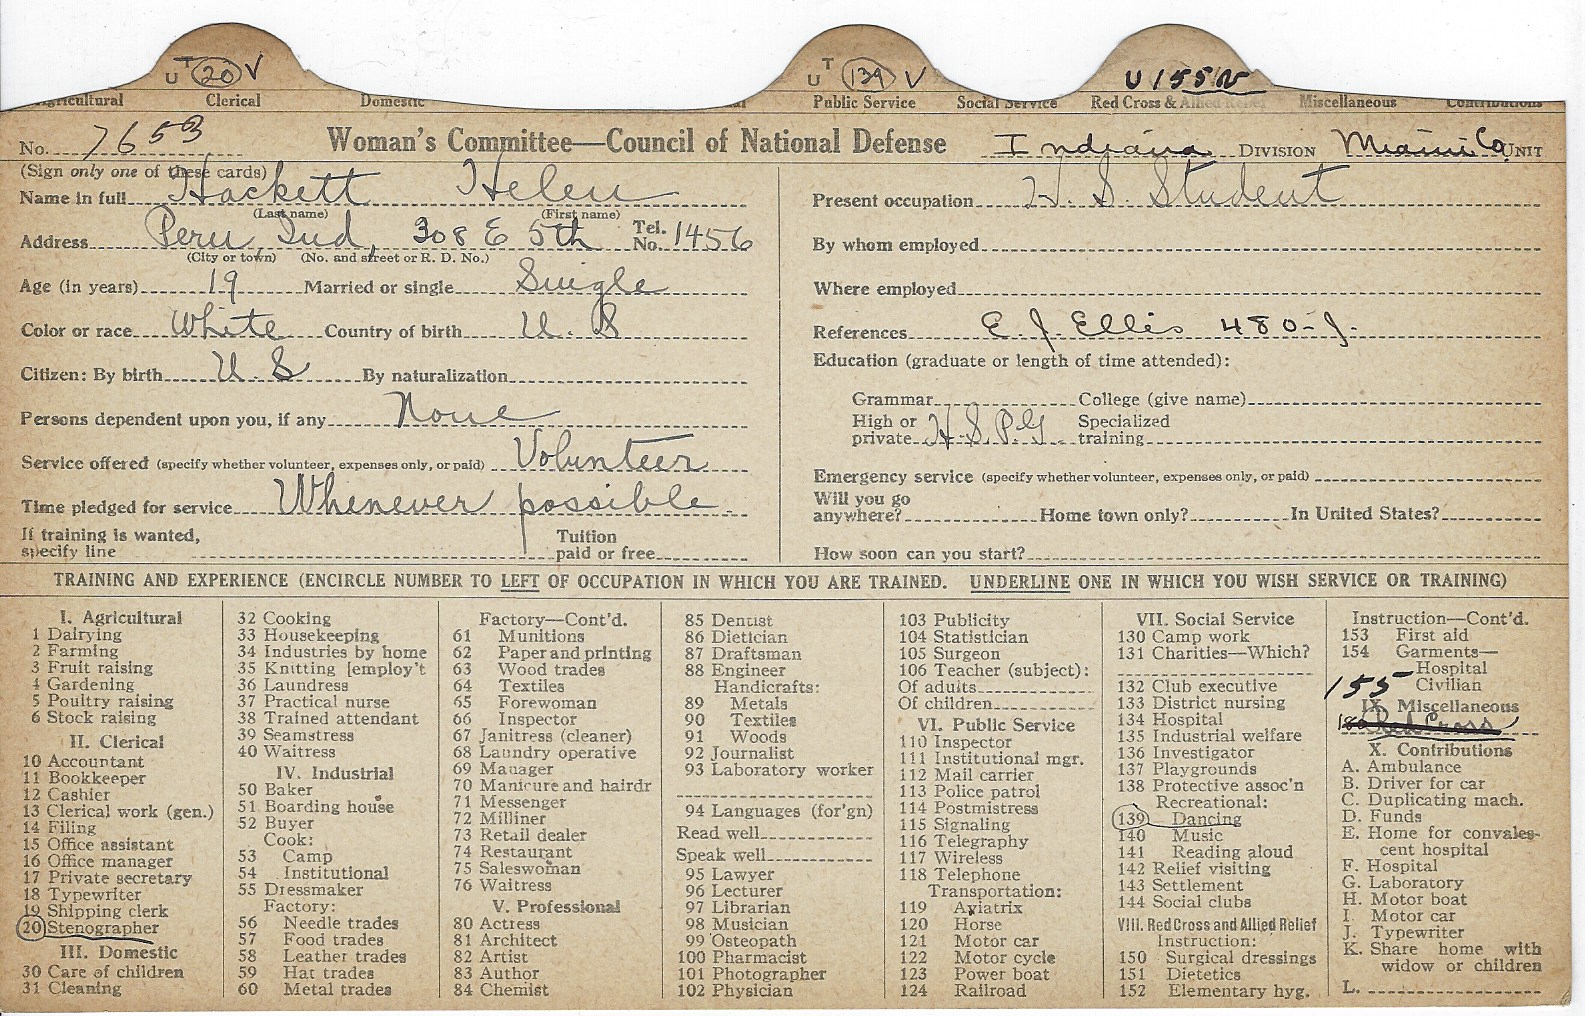 U T 20 V
U T 139 V
U 155 V
Agricultural Clerical Domestic Public Service Social Service Red Cross & Allied Relief Miscellaneous Contributions
No. 7653 Woman's Committee—Council of National Defense Indiana DIVISION Miami Co. UNIT
(Sign only one of these cards)
Name in full Hackett Helen
(Last name) (First name)
Address Peru, Ind, 308 E 5th Tel. No. 1456
(City or town) (No. and street or R. D. No.)
Age (in years) 19 Married or single Single
Color or race White Country of birth U. S
Citizen: By birth U. S By naturalization
Persons dependent upon you, if any None
Service offered (specify whether volunteer, expenses only, or paid) Volunteer
Time pledged for service Whenever possible
If training is wanted, specify line Tuition paid or free
Present occupation H. S. Student
By whom employed
Where employed
References E. J. Ellis 480-J.
Education (graduate or length of time attended):
Grammar College (give name)
High or private H.S.P.G. Specialized training
Emergency service (specify whether volunteer, expenses only, or paid)
Will you go anywhere? Home town only? In United States?
How soon can you start?
TRAINING AND EXPERIENCE (ENCIRCLE NUMBER TO LEFT OF OCCUPATION IN WHICH YOU ARE TRAINED. UNDERLINE ONE IN WHICH YOU WISH SERVICE OR TRAINING)
I. Agricultural
1 Dairying
2 Farming
3 Fruit raising
4 Gardening
5 Poultry raising
6 Stock raising
II. Clerical
10 Accountant
11 Bookkeeper
12 Cashier
13 Clerical work (gen.)
14 Filing
15 Office assistant
16 Office manager
17 Private secretary
18 Typewriter
19 Shipping clerk
20 Stenographer
III. Domestic
30 Care of children
31 Cleaning
32 Cooking
33 Housekeeping
34 Industries by home
35 Knitting [employ't
36 Laundress
37 Practical nurse
38 Trained attendant
39 Seamstress
40 Waitress
IV. Industrial
50 Baker
51 Boarding house
52 Buyer
Cook:
53 Camp
54 Institutional
55 Dressmaker
Factory:
56 Needle trades
57 Food trades
58 Leather trades
59 Hat trades
60 Metal trades
Factory—Cont'd.
61 Munitions
62 Paper and printing
63 Wood trades
64 Textiles
65 Forewoman
66 Inspector
67 Janitress (cleaner)
68 Laundry operative
69 Manager
70 Manicure and hairdr
71 Messenger
72 Milliner
73 Retail dealer
74 Restaurant
75 Saleswoman
76 Waitress
V. Professional
80 Actress
81 Architect
82 Artist
83 Author
84 Chemist
85 Dentist
86 Dietician
87 Draftsman
88 Engineer
Handicrafts:
89 Metals
90 Textiles
91 Woods
92 Journalist
93 Laboratory worker
94 Languages (for'gn)
Read well
Speak well
95 Lawyer
96 Lecturer
97 Librarian
98 Musician
99 Osteopath
100 Pharmacist
101 Photographer
102 Physician
103 Publicity
104 Statistician
105 Surgeon
106 Teacher (subject):
Of adults
Of children
VI. Public Service
110 Inspector
111 Institutional mgr.
112 Mail carrier
113 Police patrol
114 Postmistress
115 Signaling
116 Telegraphy
117 Wireless
118 Telephone
Transportation:
119 Aviatrix
120 Horse
121 Motor car
122 Motor cycle
123 Power boat
124 Railroad
VII. Social Service
130 Camp work
131 Charities—Which?
132 Club executive
133 District nursing
134 Hospital
135 Industrial welfare
136 Investigator
137 Playgrounds
138 Protective assoc'n
Recreational:
139 Dancing
140 Music
141 Reading aloud
142 Relief visiting
143 Settlement
144 Social clubs
VIII. Red Cross and Allied Relief
Instruction:
150 Surgical dressings
151 Dietetics
152 Elementary hyg.
Instruction—Cont'd.
153 First aid
154 Garments—
Hospital
155 Civilian
IX. Miscellaneous
Red Cross
X. Contributions
A. Ambulance
B. Driver for car
C. Duplicating mach.
D. Funds
E. Home for convales-
cent hospital
F. Hospital
G. Laboratory
H. Motor boat
I. Motor car
J. Typewriter
K. Share home with
widow or children
L.